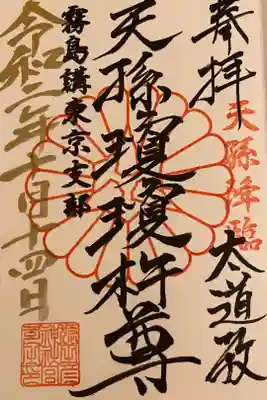 奉拝
天孫降臨
太道教
天孫瓊瓊杵尊
霧島講東京支部
令和二年十月十四日